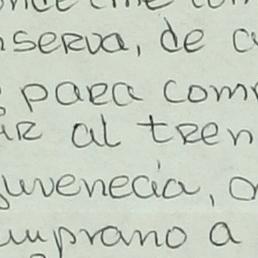 nserva, de
para com
ar al tren
juvenecia, o
mprano a